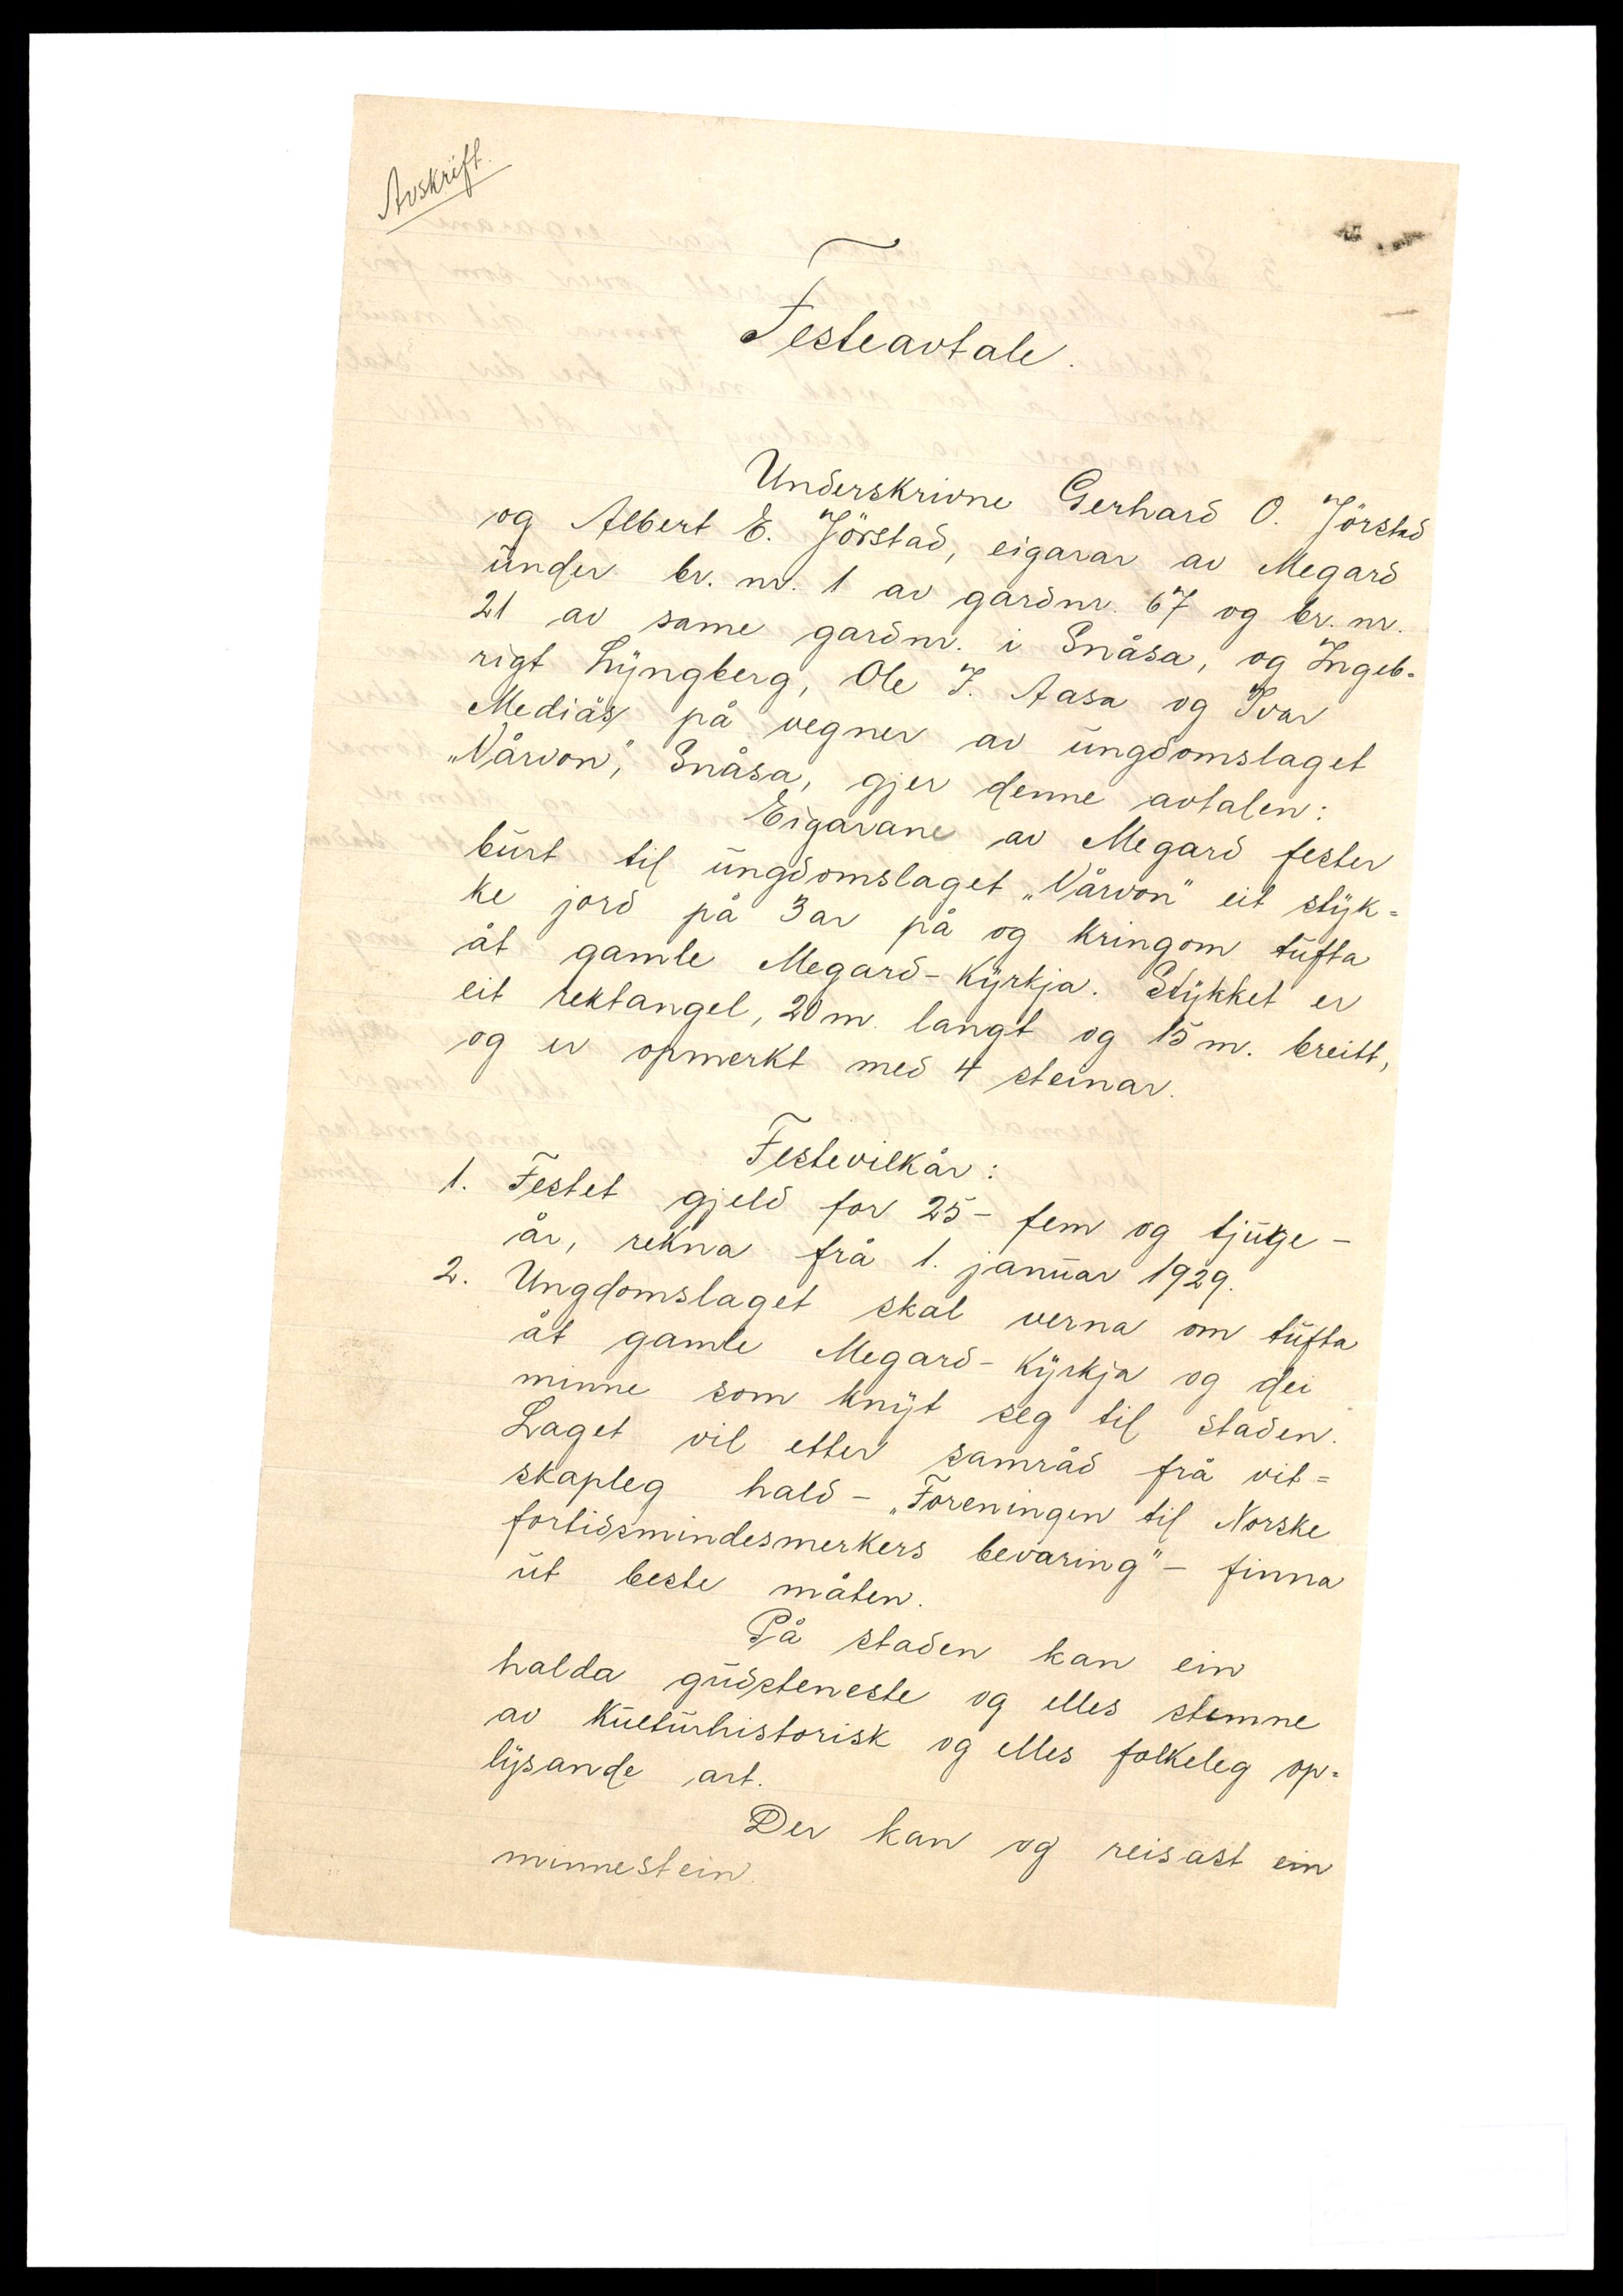 Avskrift.
Festeavtale.
Underskrivne Gerhard O. Jörstad
og Albert E. Jörstad, eigarar av Megard
under br. nr. 1 av gardnr. 67 og br. nr.
21 av same gardnr. i Snåsa, og Ingeb-
rigt Lyngberg, Ole J. Aasa og Ivar
Mediås på vegner av ungdomslaget
„Vårvon”, Snåsa, gjer denne avtalen:
Eigarane av Megard fester
burt til ungdomslaget „Vårvon” eit styk=
ke jord på 3 ar på og kringom tufta
åt gamle Megard-kyrkja. Stykket er
eit rektangel, 20 m. langt og 15 m. breitt,
og er opmerkt med 4 steinar.
Festevilkår:
1. Festet gjeld for 25 – fem og tjuge –
år, rekna frå 1. januar 1929.
2. Ungdomslaget skal verna om tufta
åt gamle Megard-kyrkja og dei
minne som knyt seg til staden.
Laget vil etter samråd frå vit=
skapleg hald – „Foreningen til Norske
fortidsmindesmerkers bevaring” – finna
ut beste måten.
På staden kan ein
halda gudsteneste og elles stemne
av kulturhistorisk og elles folkeleg op=
lysande art.
Der kan og reisast ein
minnestein.